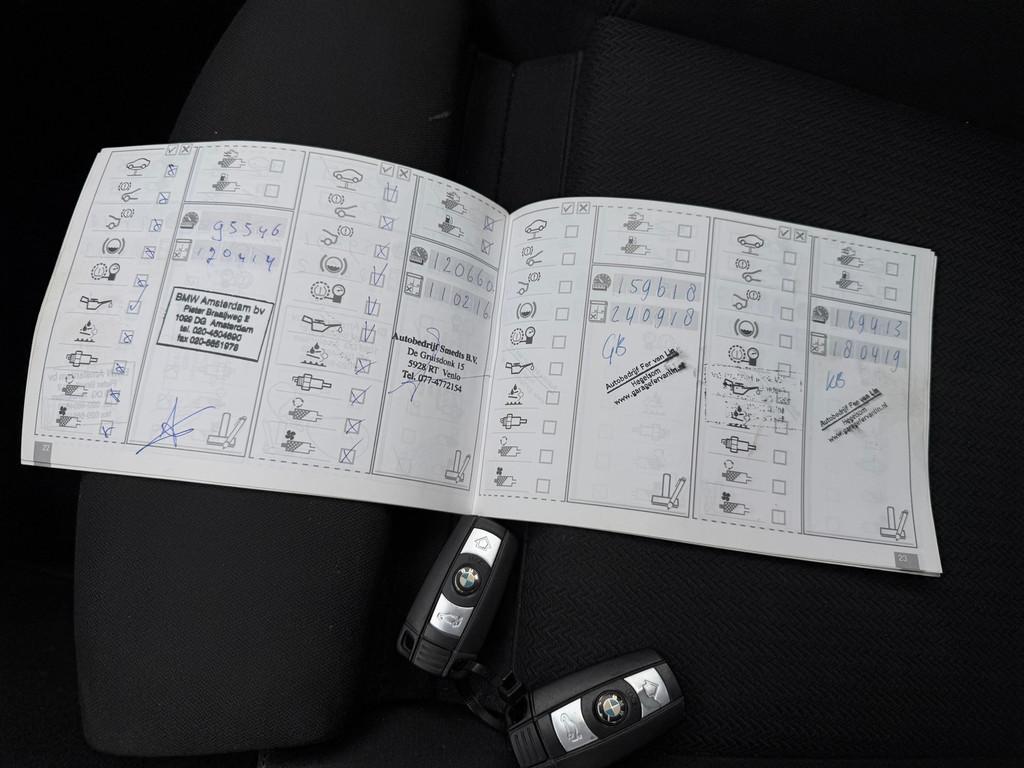 95546
120414
BMW Amsterdam bv
Pieter Braaijweg 2
1099 DG Amsterdam
tel. 020-4504690
fax 020-6651978
22
120660
110216
Autobedrijf Smedts B.V.
De Gruisdonk 15
5928 RT Venlo
Tel. 077-4772154
159618
240918
GB
Autobedrijf Fer van Lin
Hegelsom
www.garagefervanlin.nl
169413
180419
KB
Autobedrijf Fer van Lin
Hegelsom
www.garagefervanlin.nl
23